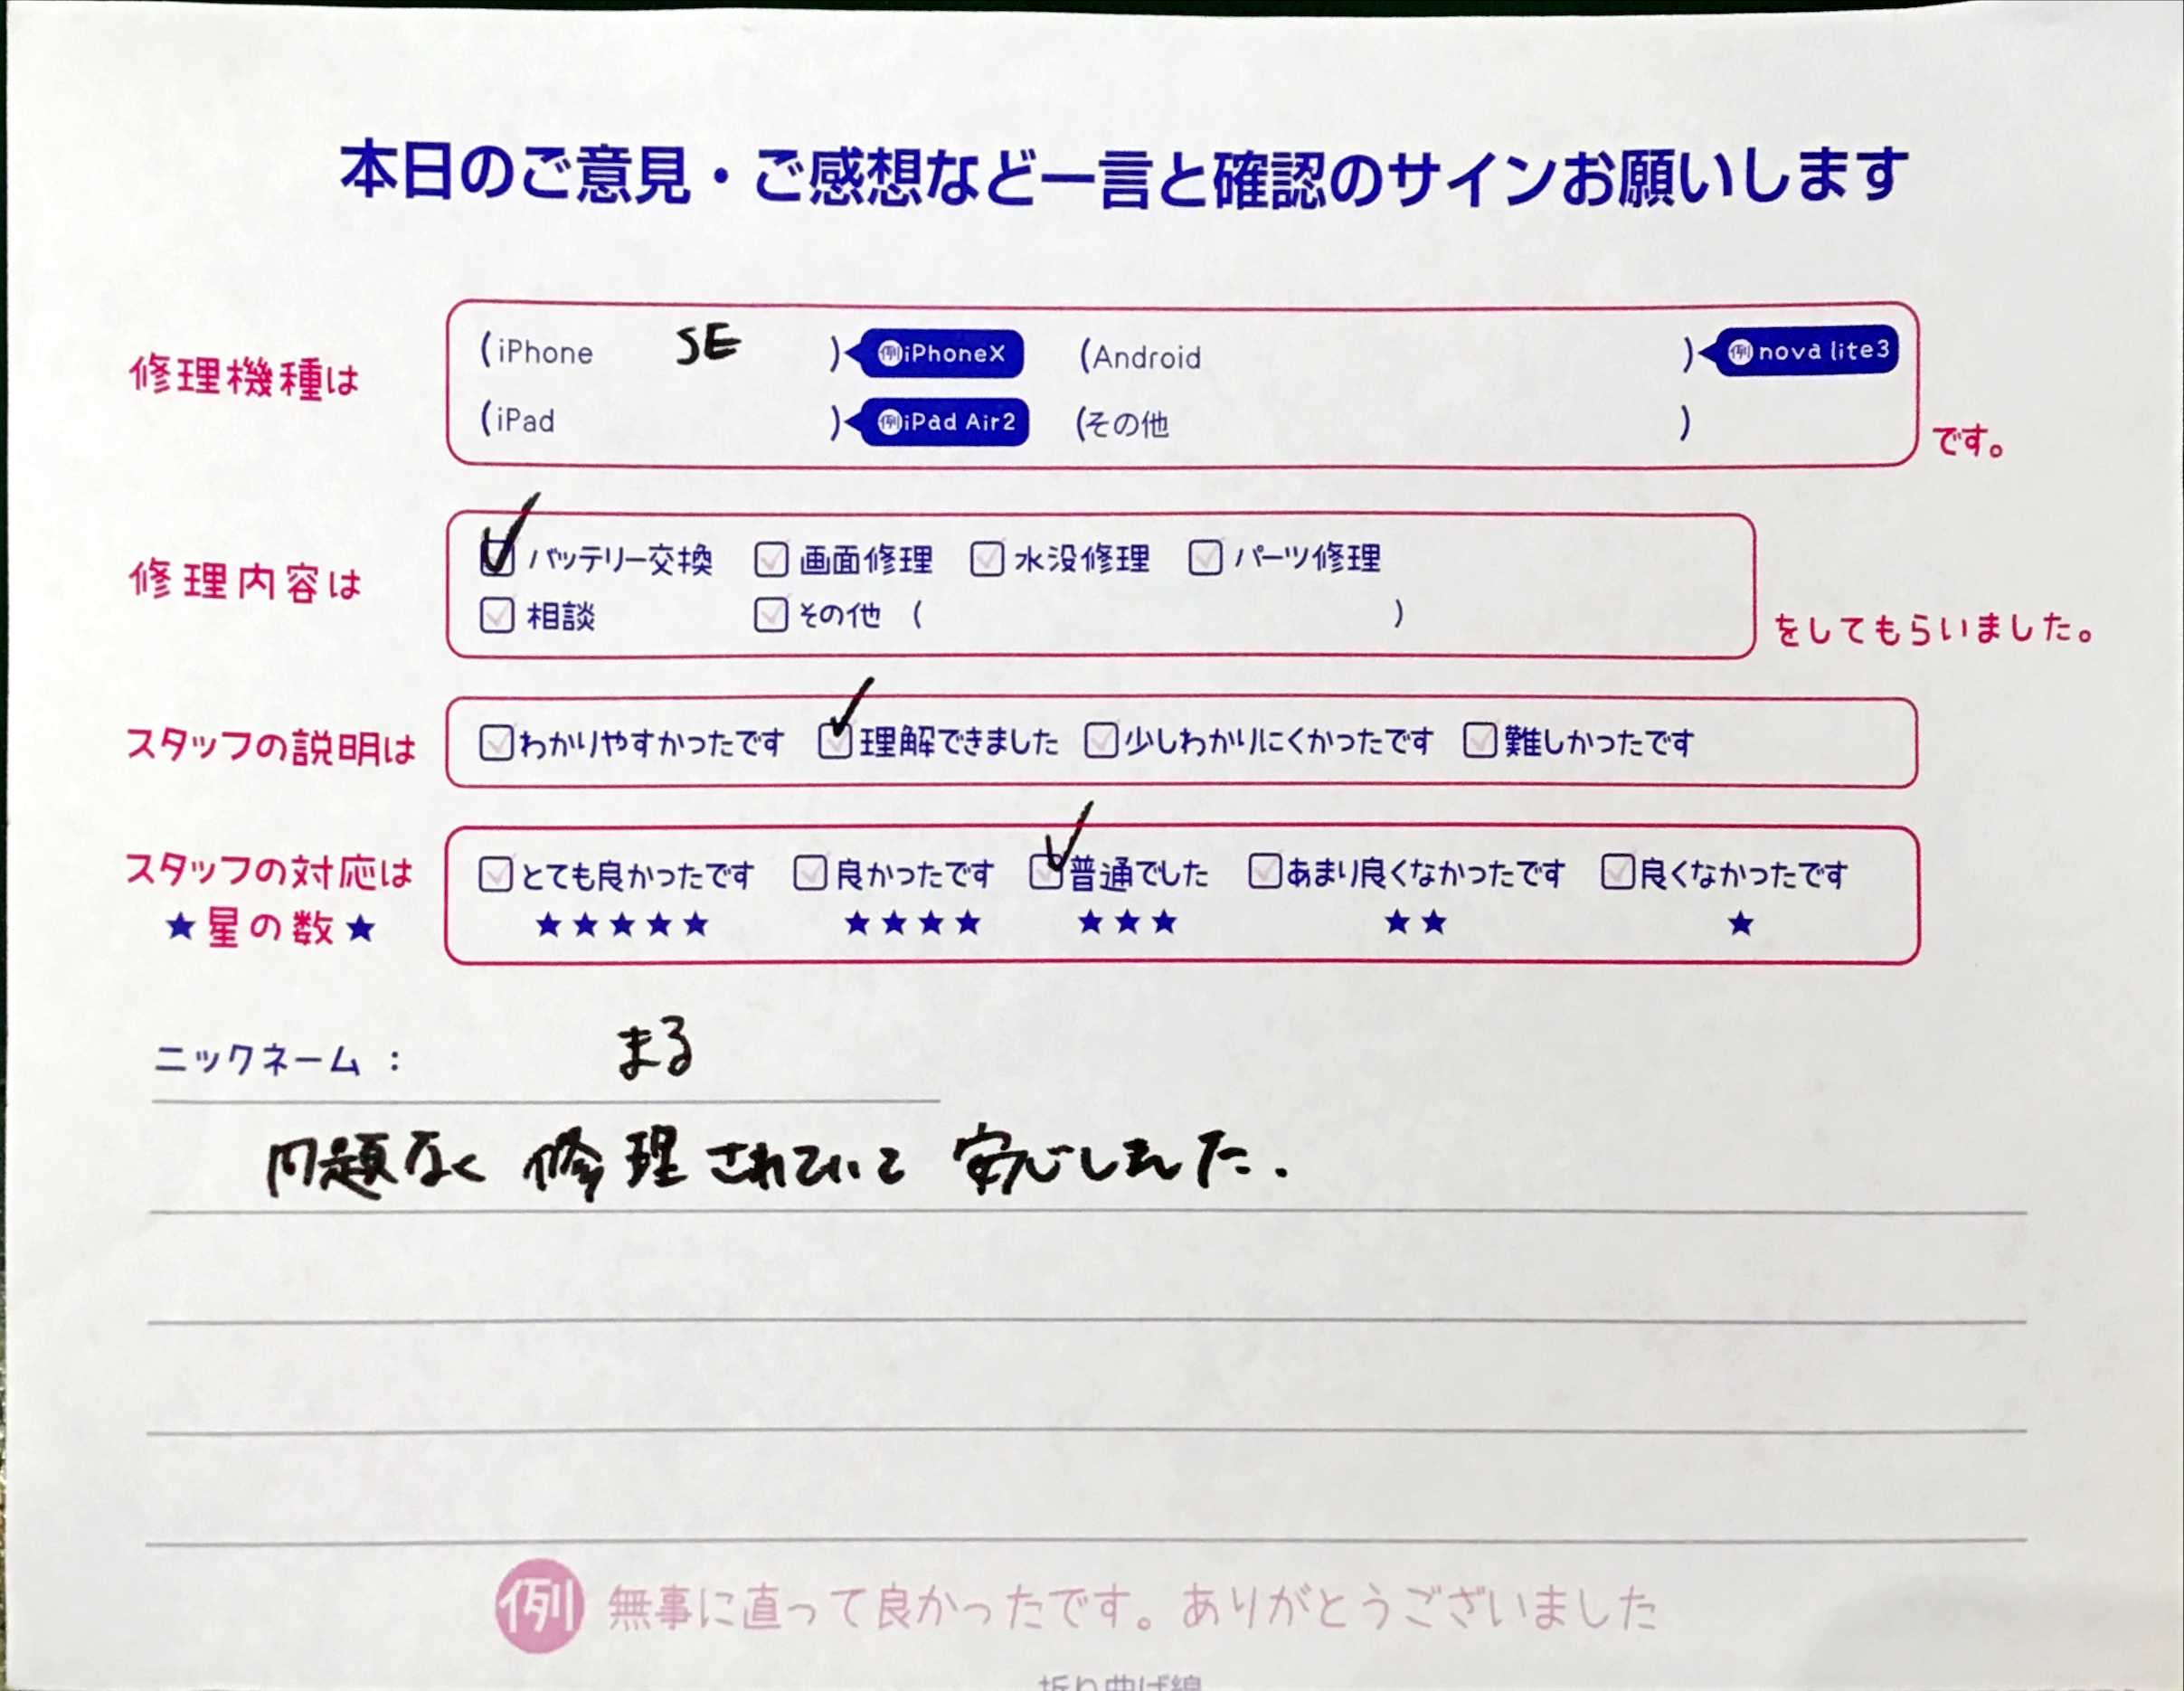 本日のご意見・ご感想など一言と確認のサインお願いします
修理機種は
(iPhone SE ) 例iPhoneX (Android ) 例nova lite3
(iPad ) 例iPad Air2 (その他 )
です。
修理内容は
バッテリー交換 画面修理 水没修理 パーツ修理
相談 その他 ( )
をしてもらいました。
スタッフの説明は わかりやすかったです 理解できました 少しわかりにくかったです 難しかったです
スタッフの対応は とても良かったです 良かったです 普通でした あまり良くなかったです 良くなかったです
★星の数★ ★★★★★ ★★★★ ★★★ ★★ ★
ニックネーム : まる
問題なく修理されていて安心しました.
例 無事に直って良かったです。ありがとうございました
折り曲げ線